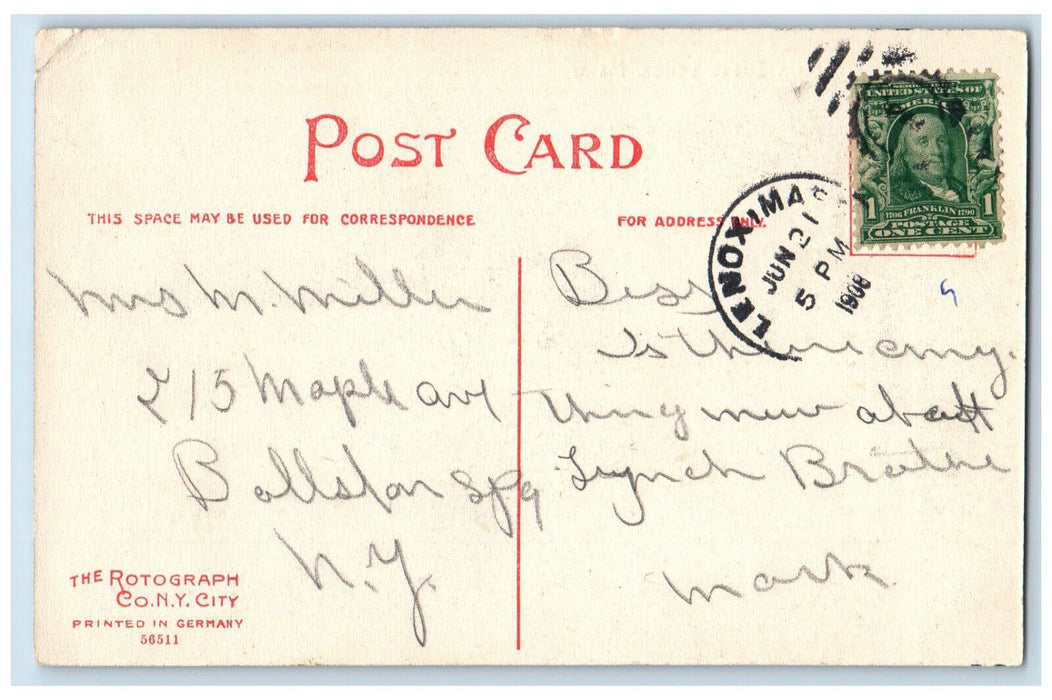 POST CARD
THIS SPACE MAY BE USED FOR CORRESPONDENCE
FOR ADDRESS ONLY.
UNITED STATES OF
AMERICA
1 1706 FRANKLIN 1790 1
POSTAGE
ONE CENT
LENOX MAS
JUN 21
5 PM
1908
9
Mrs M. Miller
215 Maple ave
Ballston Spa
N.Y.
Bess
Is there any.
thing new about
Lynch Brothe
Mark
THE ROTOGRAPH
CO. N.Y. CITY
PRINTED IN GERMANY
56511